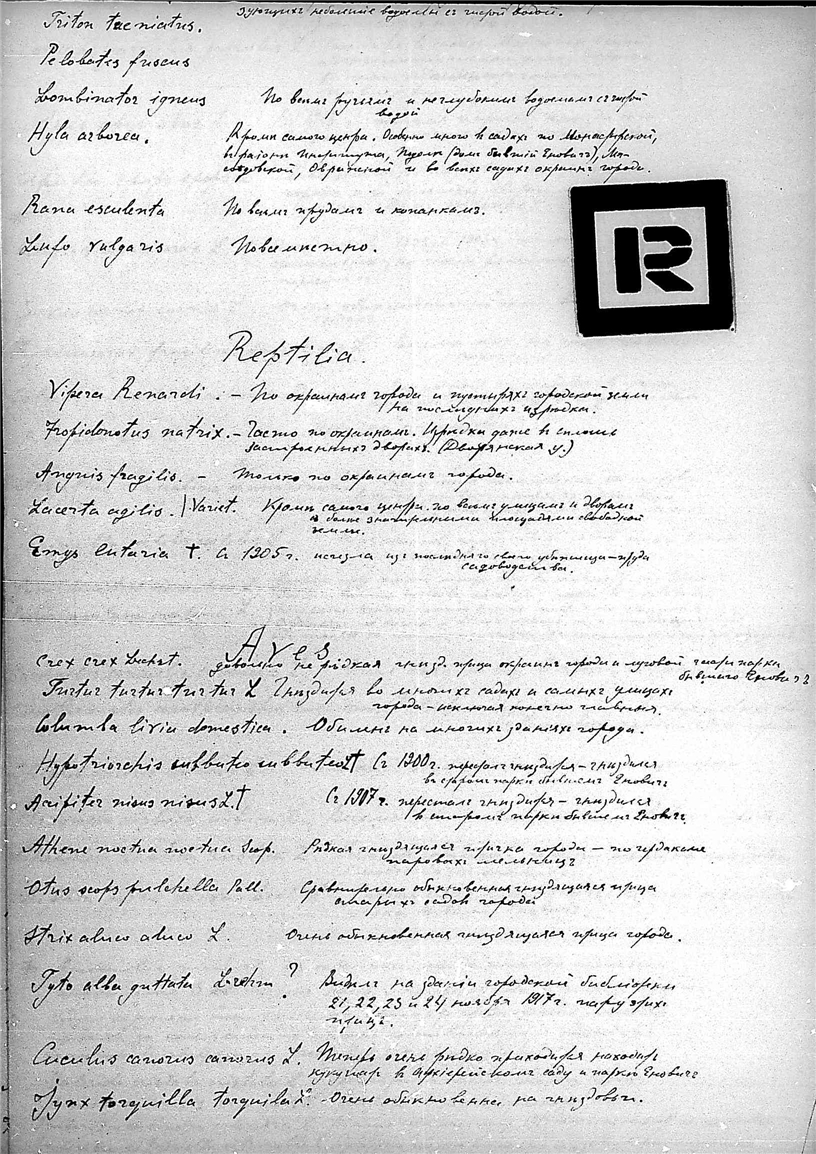 зующихъ небольшіе водоемы съ чистой водой.
Triton taeniatus.
Pelobates fuscus
Bombinator igneus По всемъ ручьямъ и неглубокимъ водоемамъ съ чистой
водой
Hyla arborea. Кромѣ самого центра. Особенно много въ садахъ по Монастырской,
въ районѣ Института, (домъ бывшій Еновича),
и во всехъ садахъ окраинъ города.
Rana esculenta По всемъ прудамъ и копанкамъ.
Bufo vulgaris Повсемѣстно.
R
Reptilia.
Vipera Renardi : – По окраинамъ города и пустыряхъ городской земли
на последнихъ изрѣдка.
Tropidonotus natrix. – Часто по окраинамъ. Изрѣдка даже въ сплошь
застроенныхъ дворахъ. (Дворянская у.)
Anguis fragilis. – только по окраинамъ города.
Lacerta agilis. / Variet. Кромѣ самого центра. по всемъ улицамъ и дворамъ
съ более значительными площадями свободной
земли.
Emys lutaria †. Съ 1905 г. исчезла изъ последняго своего убежища – пруда
садоводства.
Aves
Crex crex Bechst. довольно не рѣдкая гнезд. птица окраинъ города и луговой части парка
бывшаго Еновича
Turtur turtur turtur L Гнездится во многихъ садахъ и самыхъ улицахъ
города – исключая конечно главныя.
Columba livia domestica. Обиленъ на многихъ зданіяхъ города.
Hypotriorchis subbuteo subbuteo L † Съ 1900 г. пересталъ гнездится – гнездился
въ старомъ паркѣ бывшемъ Еновича
Accipiter nisus nisus L. † Съ 1907 г. пересталъ гнездится – гнездился
въ старомъ паркѣ бывшемъ Еновичъ.
Athene noctua noctua Scop. Рѣдкая гнездящаяся птичка города – по чердакамъ
паровыхъ мельницъ
Otus scops pulchella Pall. Сравнительно обыкновенная гнездящаяся птица
старыхъ садовъ города
Strix aluco aluco L. Очень обыкновенная гнездящаяся птица города.
Tyto alba guttata Brehm ? Видѣлъ на зданіи городской библіотеки
21, 22, 23 и 24 ноября 1917 г. пару этихъ
птицъ.
Cuculus canorus canorus L. Теперь очень рѣдко приходится находить
кукушатъ въ Архіерейскомъ саду и паркѣ Еновича
Jynx torquilla torquilla L. Очень обыкновенна на гнездовьи.